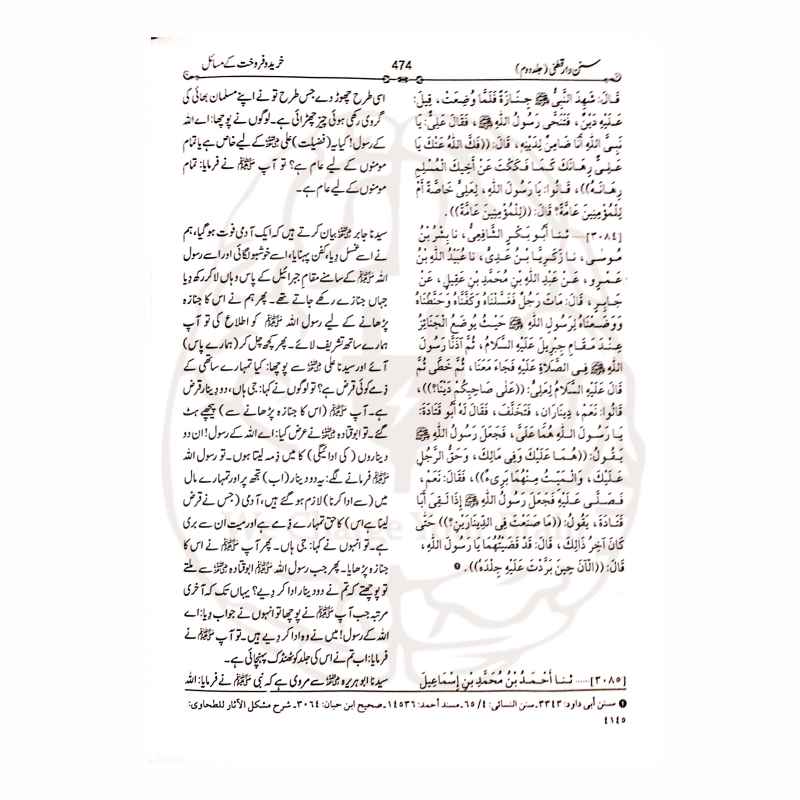 سنن دارقطنی (جلد دوم)
474
خرید و فروخت کے مسائل
قَالَ: شَهِدَ النَّبِيُّ ﷺ جِنَازَةً فَلَمَّا وُضِعَتْ، قِيلَ:
عَلَيْهِ دَيْنٌ، فَتَنَحَّى رَسُولُ اللهِ ﷺ، فَقَالَ عَلِيٌّ: يَا
نَبِيَّ اللهِ أَنَا ضَامِنٌ لِدَيْنِهِ، قَالَ: ((فَكَّ اللهُ عَنْكَ يَا
عَلِيُّ رِهَانَكَ كَمَا فَكَكْتَ عَنْ أَخِيكَ الْمُسْلِمِ
رِهَانَهُ))، قَالُوا: يَا رَسُولَ اللهِ، لِعَلِيٍّ خَاصَّةً أَمْ
لِلْمُؤْمِنِينَ عَامَّةً؟ قَالَ: ((لِلْمُؤْمِنِينَ عَامَّةً)).
[٣٠٨٤] .... ثنا أَبُو بَكْرٍ الشَّافِعِيُّ، نا بِشْرُ بْنُ
مُوسَى، نا زَكَرِيَّا بْنُ عَدِيٍّ، نا عُبَيْدُ اللهِ بْنُ
عَمْرٍو، عَنْ عَبْدِ اللهِ بْنِ مُحَمَّدِ بْنِ عَقِيلٍ، عَنْ
جَابِرٍ، قَالَ: مَاتَ رَجُلٌ فَغَسَّلْنَاهُ وَكَفَّنَّاهُ وَحَنَّطْنَاهُ
وَوَضَعْنَاهُ لِرَسُولِ اللهِ ﷺ حَيْثُ يُوضَعُ الْجَنَائِزُ
عِنْدَ مَقَامِ جِبْرِيلَ عَلَيْهِ السَّلَامُ، ثُمَّ آذَنَّا رَسُولَ
اللهِ ﷺ فِي الصَّلَاةِ عَلَيْهِ فَجَاءَ مَعَنَا، ثُمَّ خَطَّى ثُمَّ
قَالَ عَلَيْهِ السَّلَامُ لِعَلِيٍّ: ((عَلَى صَاحِبِكُمْ دَيْنٌ؟))،
قَالُوا: نَعَمْ، دِينَارَانِ، فَتَخَلَّفَ، فَقَالَ لَهُ أَبُو قَتَادَةَ:
يَا رَسُولَ اللهِ هُمَا عَلَيَّ، فَجَعَلَ رَسُولُ اللهِ ﷺ
يَقُولُ: ((هُمَا عَلَيْكَ وَفِي مَالِكَ، وَحَقُّ الرَّجُلِ
عَلَيْكَ، وَالْمَيِّتُ مِنْهُمَا بَرِيءٌ))، فَقَالَ: نَعَمْ،
فَصَلَّى عَلَيْهِ فَجَعَلَ رَسُولُ اللهِ ﷺ إِذَا لَقِيَ أَبَا
قَتَادَةَ، يَقُولُ: ((مَا صَنَعْتَ فِي الدِّينَارَيْنِ؟)) حَتَّى
كَانَ آخِرُ ذَالِكَ، قَالَ: قَدْ قَضَيْتُهُمَا يَا رَسُولَ اللهِ،
قَالَ: ((الْآنَ حِينَ بَرَّدْتَ عَلَيْهِ جِلْدَهُ)). ❶
[٣٠٨٥] .... ثنا أَحْمَدُ بْنُ مُحَمَّدِ بْنِ إِسْمَاعِيلَ
اسی طرح چھوڑ دے جس طرح تو نے اپنے مسلمان بھائی کی
گروی رکھی ہوئی چیز چھڑائی ہے۔ لوگوں نے پوچھا: اے اللہ
کے رسول! کیا یہ (فضیلت) علی رضی اللہ عنہ کے لیے خاص ہے یا تمام
مومنوں کے لیے عام ہے؟ تو آپ ﷺ نے فرمایا: تمام
مومنوں کے لیے عام ہے۔
سیدنا جابر رضی اللہ عنہ بیان کرتے ہیں کہ ایک آدمی فوت ہو گیا، ہم
نے اسے غسل دیا، کفن پہنایا، اسے خوشبو لگائی اور اسے رسول
اللہ ﷺ کے سامنے مقامِ جبرائیل کے پاس وہاں لا کر رکھ دیا
جہاں جنازے رکھے جاتے تھے۔ پھر ہم نے اس کا جنازہ
پڑھانے کے لیے رسول اللہ ﷺ کو اطلاع کی تو آپ
ہمارے ساتھ تشریف لائے۔ پھر کچھ چل کر (ہمارے پاس)
آئے اور سیدنا علی رضی اللہ عنہ سے پوچھا: کیا تمہارے ساتھی کے
ذمے کوئی قرض ہے؟ تو لوگوں نے کہا: جی ہاں، دو دینار قرض
ہے۔ آپ ﷺ (اس کا جنازہ پڑھانے سے) پیچھے ہٹ
گئے۔ تو ابوقتادہ رضی اللہ عنہ نے عرض کیا: اے اللہ کے رسول! ان دو
دیناروں (کی ادائیگی) کا میں ذمہ لیتا ہوں۔ تو رسول اللہ
ﷺ فرمانے لگے: یہ دو دینار (اب) تجھ پر اور تمہارے مال
میں (سے ادا کرنا) لازم ہو گئے ہیں، آدمی (جس نے قرض
لینا ہے اس) کا حق تمہارے ذمے ہے اور میت ان سے بری
ہے۔ تو انہوں نے کہا: جی ہاں۔ پھر آپ ﷺ نے اس کا
جنازہ پڑھایا۔ پھر جب رسول اللہ ﷺ ابوقتادہ رضی اللہ عنہ سے ملتے
تو پوچھتے کہ تم نے دو دینار ادا کر دیے؟ یہاں تک کہ آخری
مرتبہ جب آپ ﷺ نے پوچھا تو انہوں نے جواب دیا: اے
اللہ کے رسول! میں نے وہ ادا کر دیے ہیں۔ تو آپ ﷺ نے
فرمایا: اب تم نے اس کی جلد کو ٹھنڈک پہنچائی ہے۔
سیدنا ابوہریرہ رضی اللہ عنہ سے مروی ہے کہ نبی ﷺ نے فرمایا: اللہ
❶ سنن أبی داود: ٣٣٤٣۔ سنن النسائی: ٤/ ٦٥۔ مسند أحمد: ١٤٥٣٦۔ صحیح ابن حبان: ٣٠٦٤۔ شرح مشکل الآثار للطحاوی:
٤١٤٥